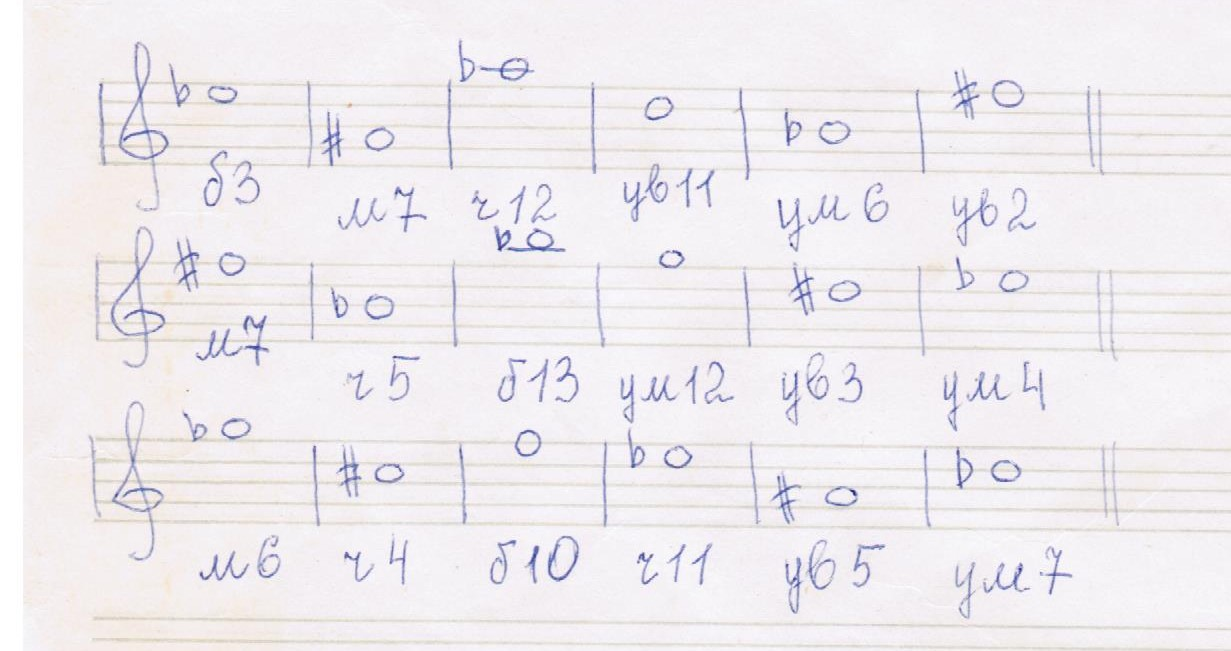 б3 м7 ч12 ув11 ум6 ув2
м7 ч5 б13 ум12 ув3 ум4
м6 ч4 б10 ч11 ув5 ум7